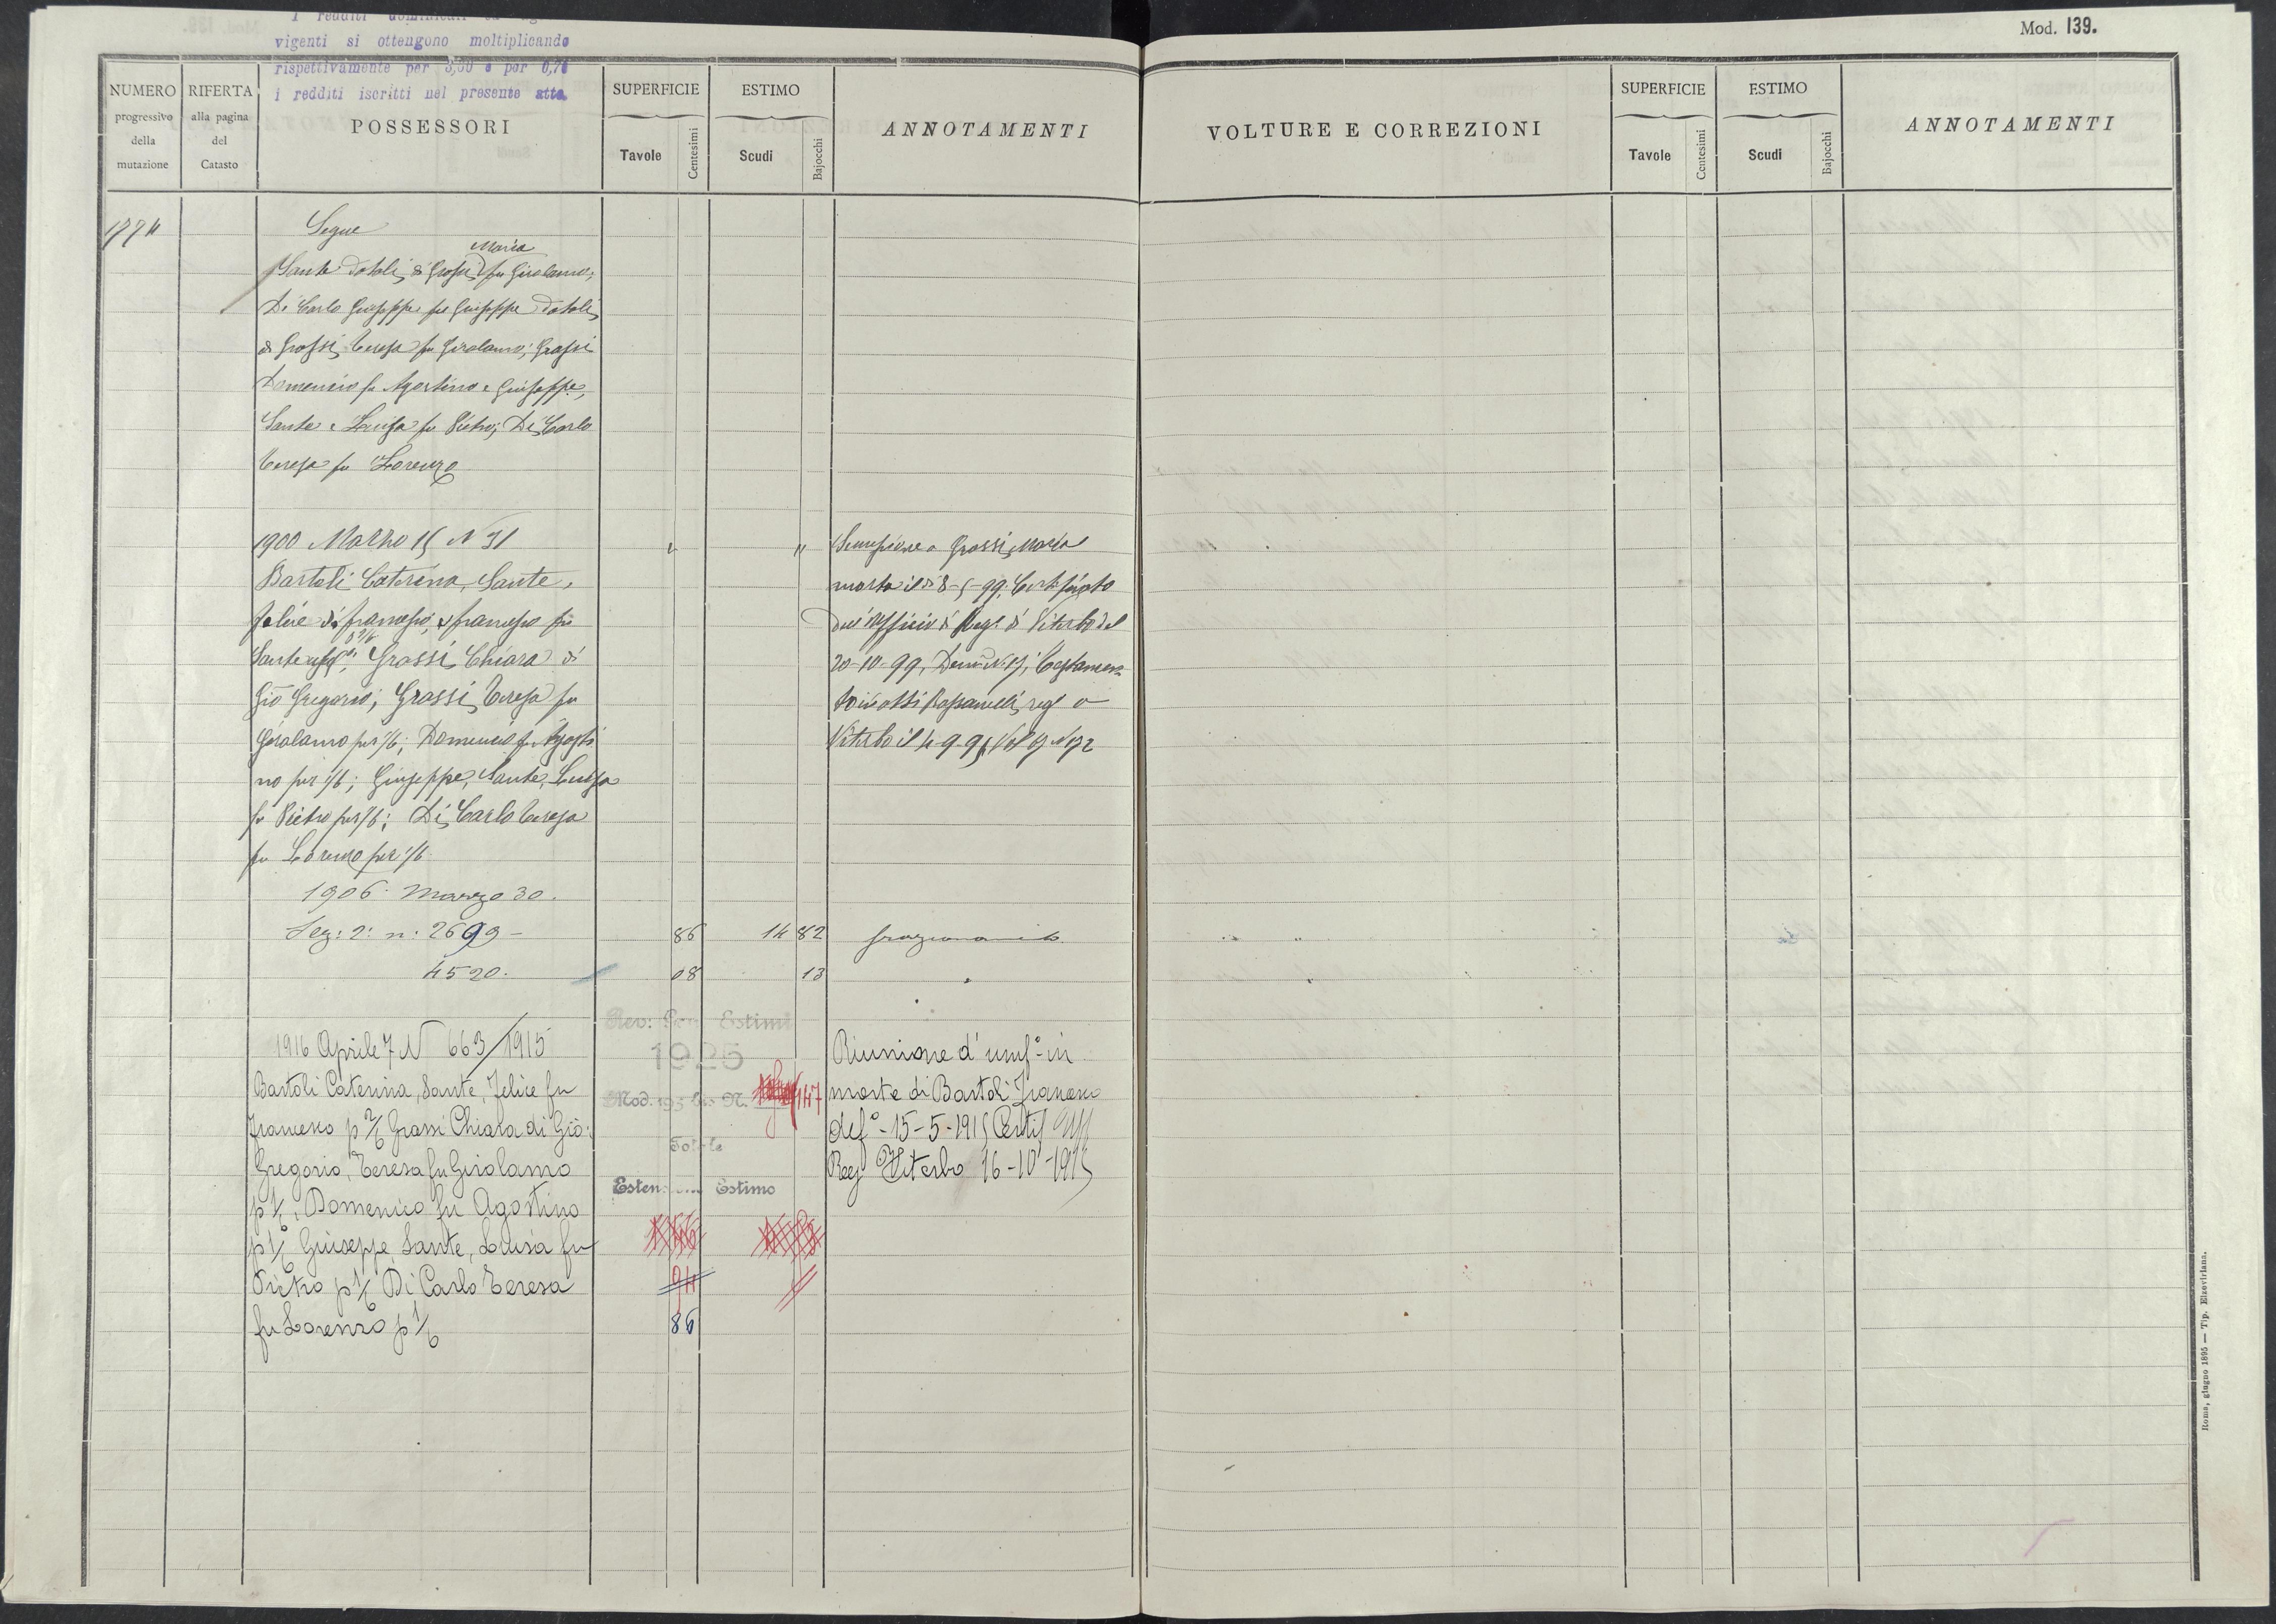 Mod. 139.
vigenti si ottengono moltiplicando
rispettivamente per 3,50 e per 0,70
i redditi iscritti nel presente atto.
NUMERO progressivo della mutazione
RIFERTA alla pagina del Catasto
POSSESSORI
SUPERFICIE
Tavole
Centesimi
ESTIMO
Scudi
Bajocchi
ANNOTAMENTI
VOLTURE E CORREZIONI
SUPERFICIE
Tavole
Centesimi
ESTIMO
Scudi
Bajocchi
ANNOTAMENTI
Segue
Maria
Sante dotali di Grossi fu Girolamo;
Di Carlo Giuseppe fu Giuseppe dotali
di Grossi Teresa fu Girolamo; Grossi
Domenico fu Agostino e Giuseppe,
Sante e Luisa fu Pietro; Di Carlo
Teresa fu Lorenzo
1900 Marzo 15 N 31
Bartoli Caterina, Sante,
Felice di Francesco, e Francesco fu
Sante Grossi Chiara di
Gio Gregorio; Grossi Teresa fu
Girolamo per 1/6; Domenico fu Agosti
no per 1/6; Giuseppe, Sante, Luisa
fu Pietro per 1/6; Di Carlo Teresa
fu Lorenzo per 1/6.
Successione a Grossi Maria
morta il dì 8-5-99. Certificato
dell'Officio di Reg. di Viterbo del
20-10-99, Den. N. 17; Testamen
to in atti Bassanelli reg a
Viterbo il 4-9-95 Vol 17 N 172
1906 Marzo 30.
Sez: 2: n: 2699 - 86 14 82 frazionamento
4520. 08 13 "
Rev: Gen Estimi
1925
Mod. 193 bis N. 147
Totale
Estensione Estimo
94
86
1916 Aprile 7 N 663/1915
Bartoli Caterina, Sante, Felice fu
Francesco p 2/6 Grassi Chiara di Gio:
Gregorio, Teresa fu Girolamo
p 1/6, Domenico fu Agostino
p 1/6 Giuseppe, Sante, Luisa fu
Pietro p 1/6 Di Carlo Teresa
fu Lorenzo p 1/6
Riunione d'usuf.o in
morte di Bartoli Francesco
def.o - 15-5-1915 Certif Uff
Reg Viterbo 16-10-1915
Roma, giugno 1895 — Tip. Elzeviriana.